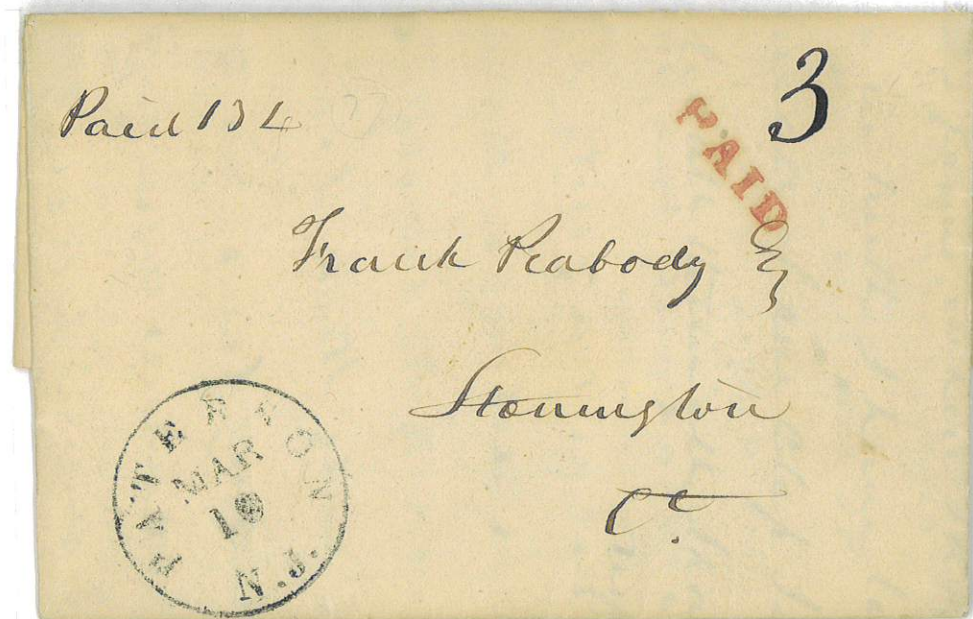 Paid 134
3
PAID
Frank Peabody Esq
Stonington
Ct.
PATERSON
MAR
N.J.